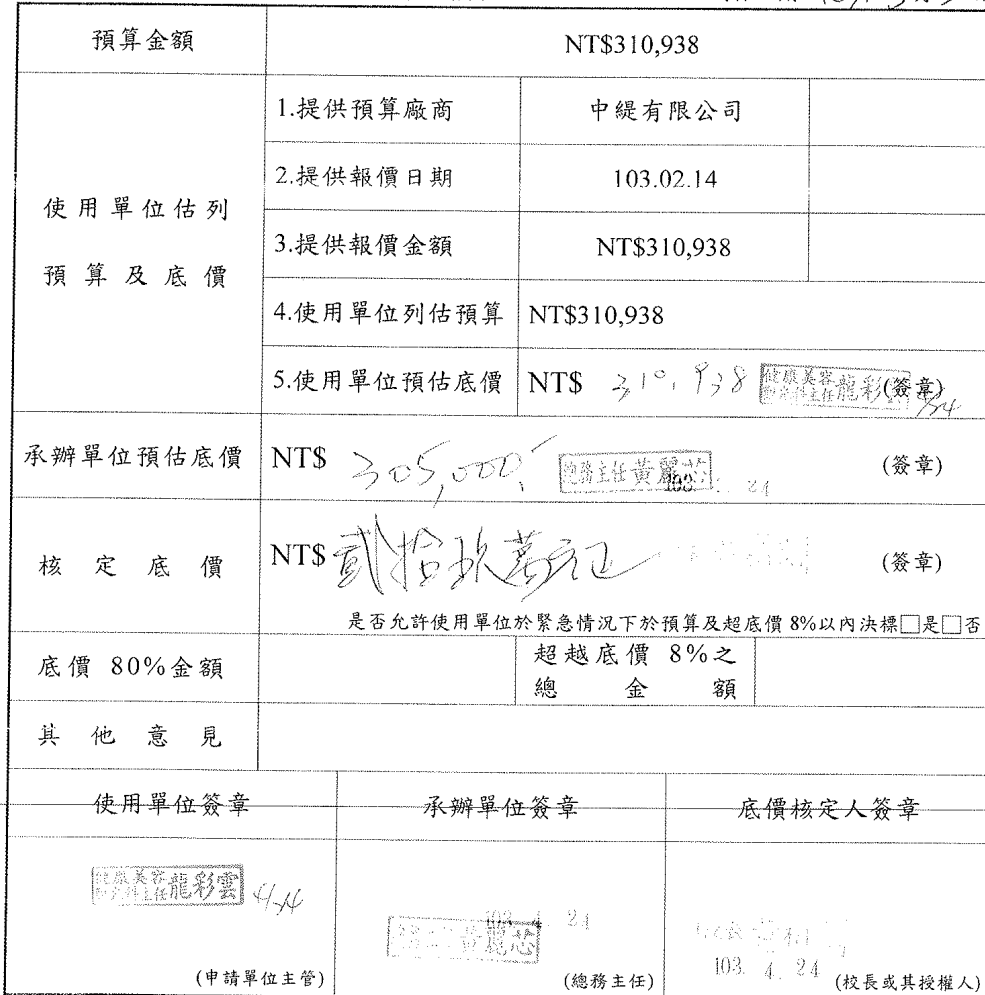 預算金額 NT$310,938
使用單位估列
預算及底價
1.提供預算廠商 中緹有限公司
2.提供報價日期 103.02.14
3.提供報價金額 NT$310,938
4.使用單位列估預算 NT$310,938
5.使用單位預估底價 NT$ 310,938 龍彩 (簽章)
承辦單位預估底價 NT$ 305,000 總務主任黃麗芯 24 (簽章)
核定底價 NT$ 貳拾玖萬元正 (簽章)
是否允許使用單位於緊急情況下於預算及超底價 8%以內決標□是□否
底價 80%金額
超越底價 8%之
總金額
其他意見
使用單位簽章 承辦單位簽章 底價核定人簽章
龍彩雲
103. 4. 24
黃麗芯
103. 4. 24
(申請單位主管) (總務主任) (校長或其授權人)